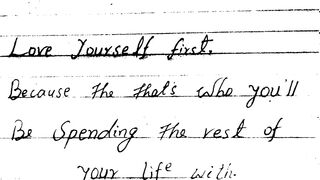 Love Yourself first.
Because the that's who you'll
Be Spending the rest of
your life with.